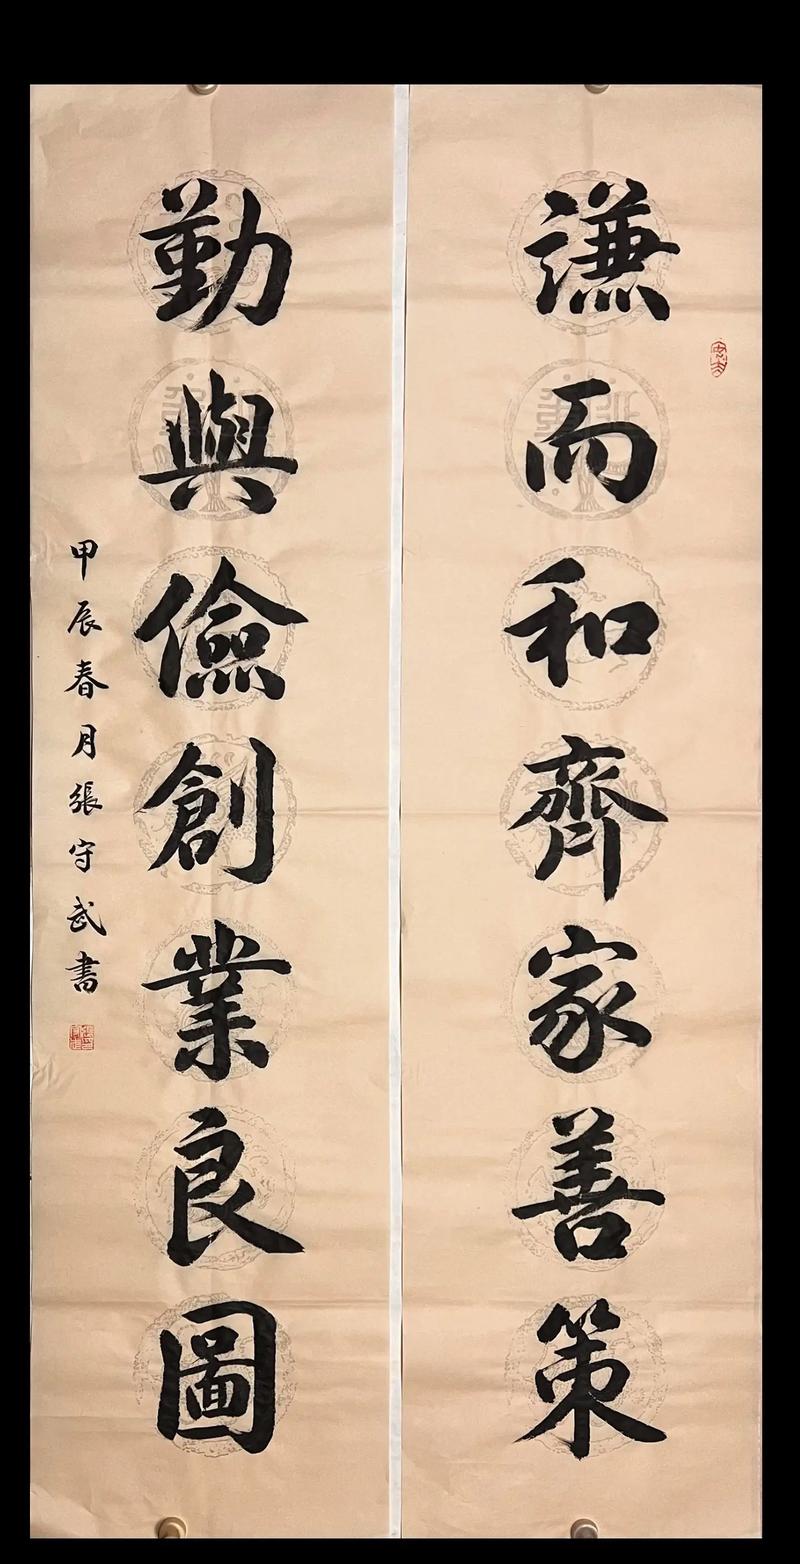 謙而和齊家善策
勤與儉創業良圖
甲辰春月張守武書